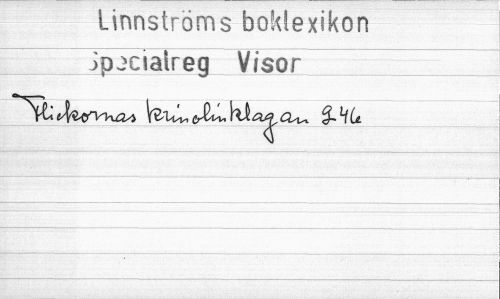 Linnströms boklexikon
Specialreg Visor
Flickornas krinolinklagan 946